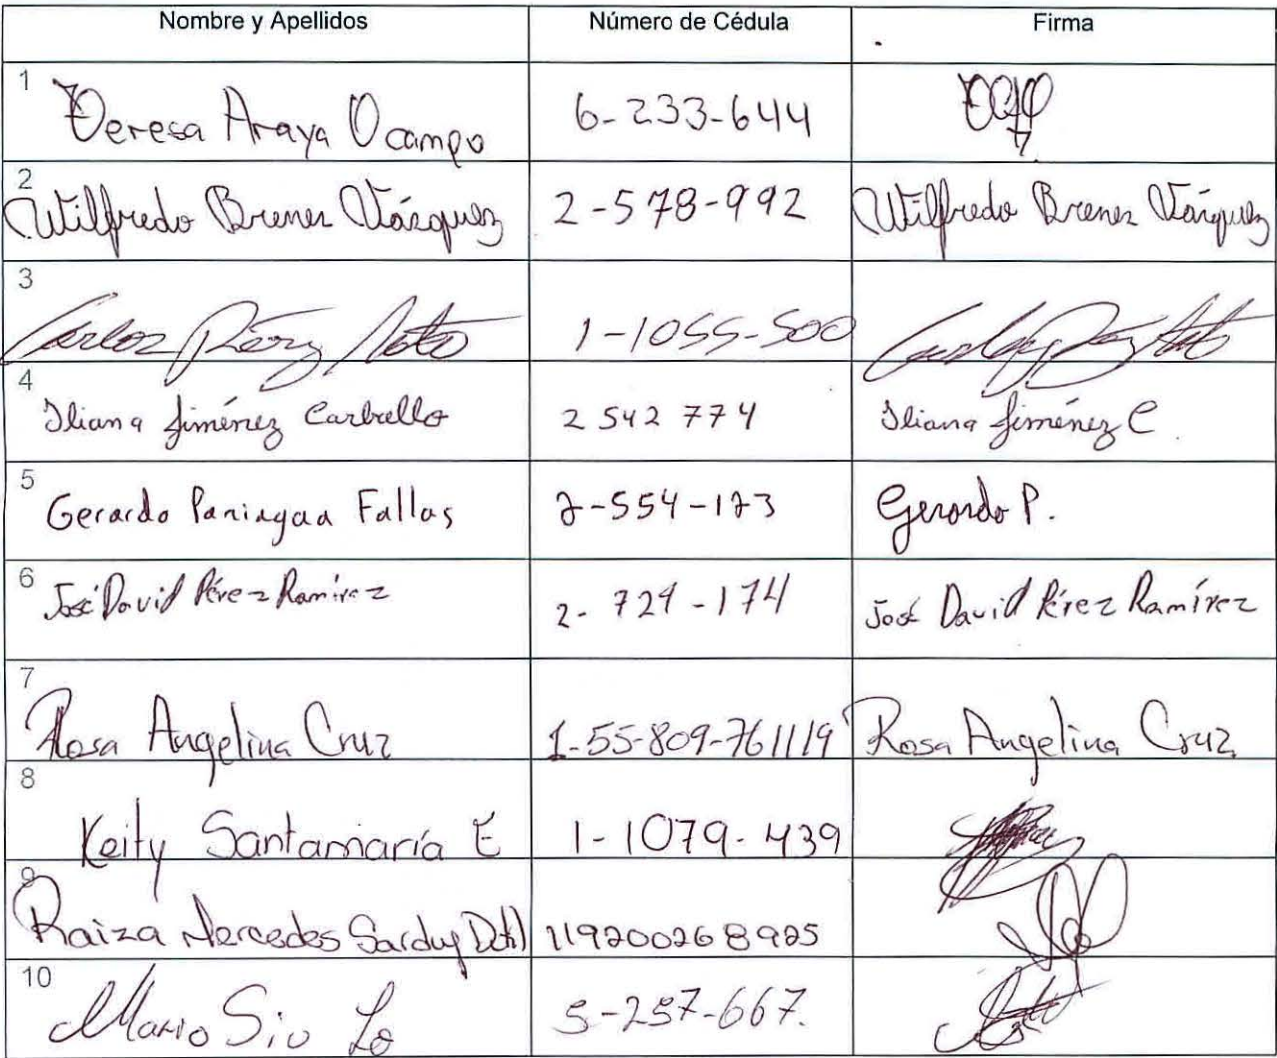 Nombre y Apellidos Número de Cédula Firma
1 Teresa Araya Ocampo 6-233-644
2 Wilfredo Brenes Vásquez 2-578-992 Wilfredo Brenes Vásquez
3 Carlos Pérez Soto 1-1055-500
4 Iliana Jiménez Carballo 2 542 774 Iliana Jiménez C.
5 Gerardo Paniagua Fallas 2-554-123 Gerardo P.
6 José David Pérez Ramírez 2-729-174 José David Pérez Ramírez
7 Rosa Angelina Cruz 1-55-809-761119 Rosa Angelina Cruz
8 Keity Santamaría E 1-1079-439
9 Raiza Mercedes Sarduy 119200268925
10 Mario Sio Lo 5-257-667.